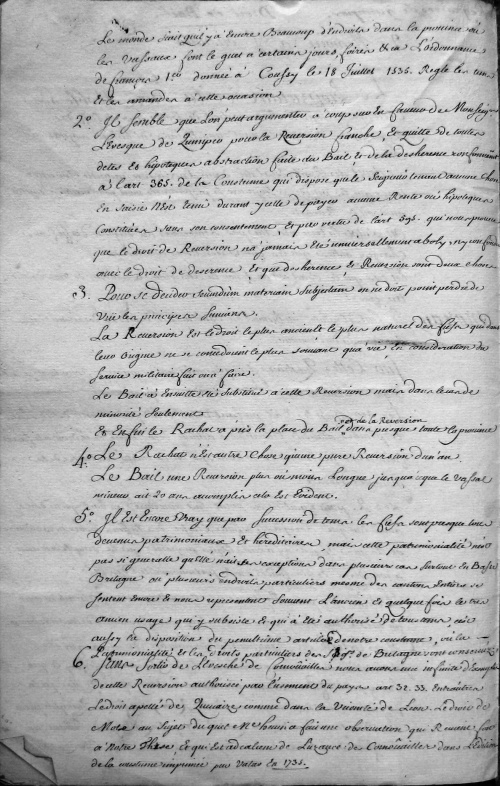 Le monde scait quil y a Encore Beaucoup d'Endroits dans la province ou
les Vassaux font le guet a certains jours, foires L'ordonnance
de françois 1er donnée a Coussy le 18 Juillet 1535. Regle les
et les amandes a cette occasion
2° Il semble que L'on peut argumenter a coup sur En faveur de Monseigneur
L'Evesque de Quimper pour la Reversion franche, et quitte de toutes
detes et hipoteques abstraction faite du Bail et de la desherence
a l'art 365. de la Coustume qui dispose que le Seigneur tenant aucune Chose
En saisie N'est tenu durant ycelle de payer aucune Rente ou hipoteque
Constituée sans son consentement et peu verte de l'art 595. qui nous prouve
que le droit de Reversion n'a jamais Eté universellement aboly, n'y confondu
avec le droit de desherence Et que desherence et Reversion sont deux choses
3. Pour se decider secundum materiam Subjectam on ne doit point perdre de
Vue les principes suivans.
La Reversion est le droit le plus ancien et le plus naturel des fiefs qui dans
leur origine ne se concedoient le plus souvant qu'a vie En consideration du
service militaire fait ou a faire.
Le Bail a Ensuite été Substitué a cette Reversion mais dans le cas de
minorité Seulement
Et Enfin le Rachat a pris la place du Bail non de la Reversion dans presque toute la province
4° Le Rachat n'est autre Chose qu'une pure Reversion d'un an.
Le Bail une Reversion plus ou moins Longue jusqu'a ce que le Vassal
mineur ait 20 ans accomplis cela est Evident.
5° Il Est Encore Vray que par succession de tems les fiefs sont presque tous
devenus patrimoniaux et hereditaires, mais cette patrimonialité n'est
pas si generalle qu'elle n'ait des exceptions dans plusieurs cas surtout En Basse
Bretagne ou plusieurs endroits particuliers mesme des cantons Entiers se
sentent Encore et nous representent Souvent L'ancien et quelque fois le tres
ancien usage qui y subsiste et qui a été authorisé De tous tems
aussy la disposition du penultieme article de notre coustume, ou la
Patrimonialité et les droits particuliers des Sgrs. de Bretagne sont conservez
6. Sans Sortir de L'evesché de Cornoüailles nous avons une infinité d'exemples
de cette Reversion authorisée par l'usement du pays art 32. 33. Entr'autres
Le droit apellé de Quevaize, comme dans la Vicomté de Leon Le droit de
Mote au sujet du quel Me hevin a fait une observation qui Revient fort
a Notre These, et qui est de de Cornoüailler dans L'Edition
de la coustume imprimée par Vatar En 1735.